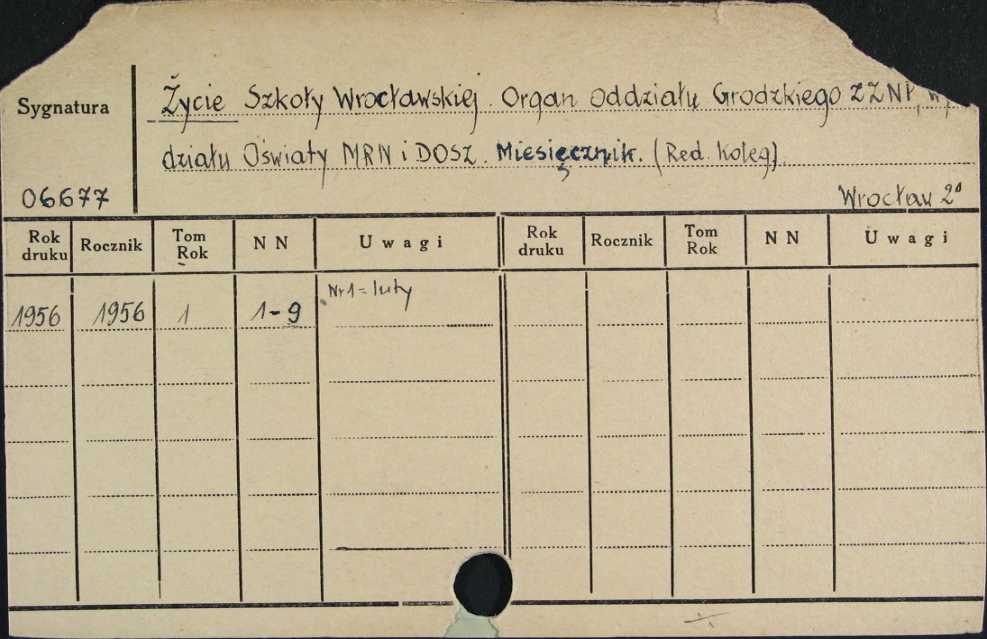 Sygnatura
Życie Szkoły Wrocławskiej. Organ Oddziału Grodzkiego ZZNP,
działu Oświaty MRN i DOSZ. Miesięcznik. (Red. Koleg).
06677
Wrocław 2°
Rok druku Rocznik Tom Rok NN Uwagi Rok druku Rocznik Tom Rok NN Uwagi
1956 1956 1 1-9 Nr 1 = luty